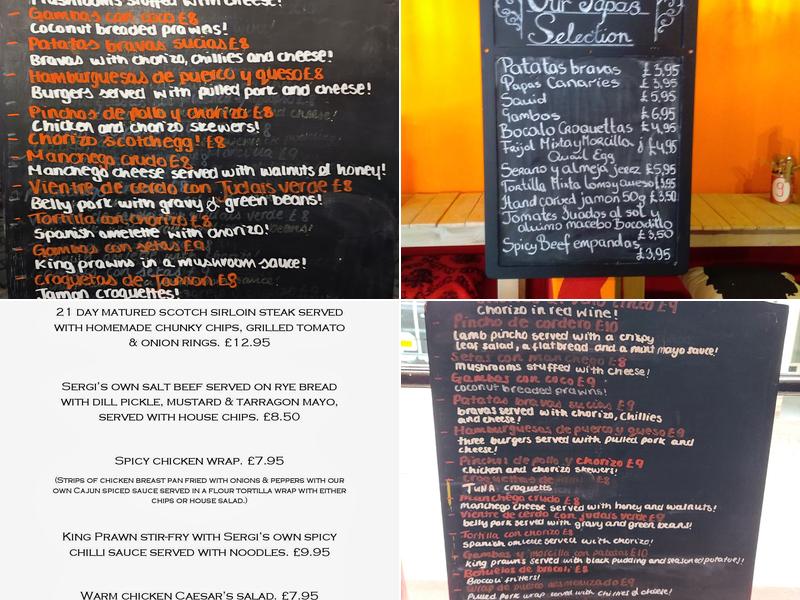 Mushrooms stuffed with cheese!
- Gambas con coco £8
Coconut breaded prawns!
- Patatas bravas sucias £8
Bravas with chorizo, chillies and cheese!
- Hamburguesas de puerco y queso £8
Burgers served with pulled pork and cheese!
- Pinchos de pollo y chorizo £8
Chicken and chorizo skewers!
- Chorizo scotchegg! £8
- Manchego crudo £8
Manchego cheese served with walnuts & honey!
- Vientre de cerdo con Judais verde £8
Belly pork with gravy & green beans!
- Tortilla con chorizo £8
Spanish omelette with chorizo!
- Gambas con setas £9
King prawns in a mushroom sauce!
- Croquetas de Jamon £8
Jamon croquettes!
Our Tapas
Selection
Patatas bravas £3,95
Papas Canaries £3,95
Squid £5,95
Gambos £6,95
Bocalo Croquettas £4,95
Frijol Mixta y Morcilla £4,95
Quail Egg
Serano y almeja jerez £5,95
Tortilla Mixta Lomo y queso
Hand carved jamon 50g £3,50
Tomates Juados al sol y
aluimo macebo Bocadillo
£3,50
Spicy Beef empandas
£3,95
9
21 day matured Scotch sirloin steak served
with homemade chunky chips, grilled tomato
& onion rings. £12.95
Sergi's own salt beef served on rye bread
with dill pickle, mustard & tarragon mayo,
served with house chips. £8.50
Spicy chicken wrap. £7.95
(Strips of chicken breast pan fried with onions & peppers with our
own Cajun spiced sauce served in a flour tortilla wrap with either
chips or house salad.)
King Prawn stir-fry with Sergi's own spicy
chilli sauce served with noodles. £9.95
Warm chicken Caesar's salad. £7.95
chorizo in red wine!
- Pincho de cordero £10
lamb pincho served with a crispy
leaf salad, a flatbread and a mint mayo sauce!
- Setas con manchego £8
mushrooms stuffed with cheese!
- Gambas con coco £9
coconut breaded prawns!
- Patatas bravas sucias £9
bravas served with chorizo, chillies
and cheese!
- Hamburguesas de puerco y queso £9
three burgers served with pulled pork and
cheese!
- Pinchos de pollo y chorizo £9
chicken and chorizo skewers!
- Croquettas de £8
Tuna croquetts
- Manchego crudo £8
manchego cheese served with honey and walnuts!
- Vientre de cerdo con judais verde £9
belly pork served with gravy and green beans!
- Tortilla con chorizo £8
spanish omlette served with chorizo!
- Gambas y morcilla con patatas £10
king prawns served with black pudding and seasoned potatoes!
- Beñuelos de brocoli £8
Brocoli fritters!
- Wrap de puerco desmenuzado £9
Pulled pork wrap served with chillies & cheese!